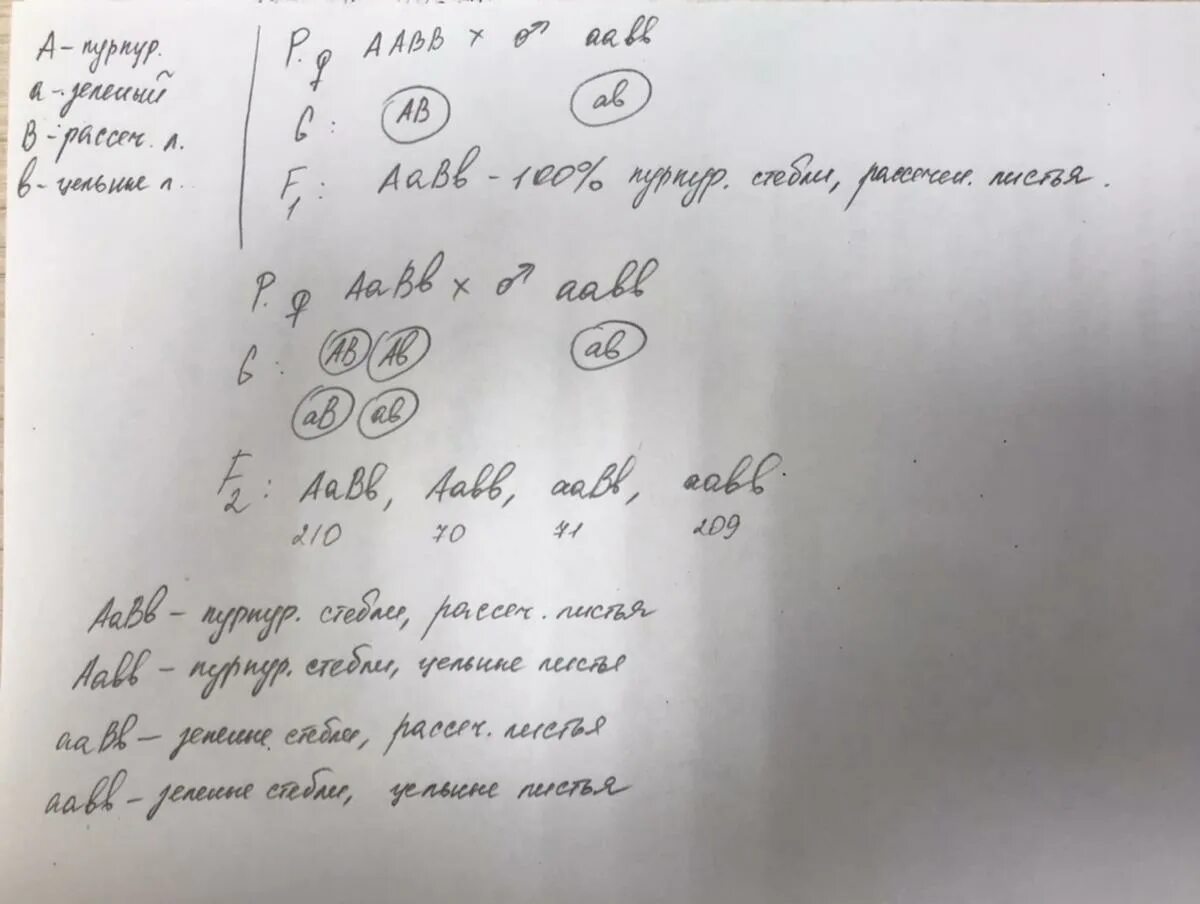 А - пурпур.
а - зеленый
В - рассеч. л.
в - цельные л.
P. ♀ ААВВ × ♂ аавв
G: АВ ав
F1: АаВв - 100% пурпур. стебли, рассечен. листья.
P. ♀ АаВв × ♂ аавв
G: АВ Ав ав
аВ ав
F2: АаВв, Аавв, ааВв, аавв.
210 70 71 209
АаВв – пурпур. стебли, рассеч. листья
Аавв – пурпур. стебли, цельные листья
ааВв – зеленые стебли, рассеч. листья
аавв – зеленые стебли, цельные листья